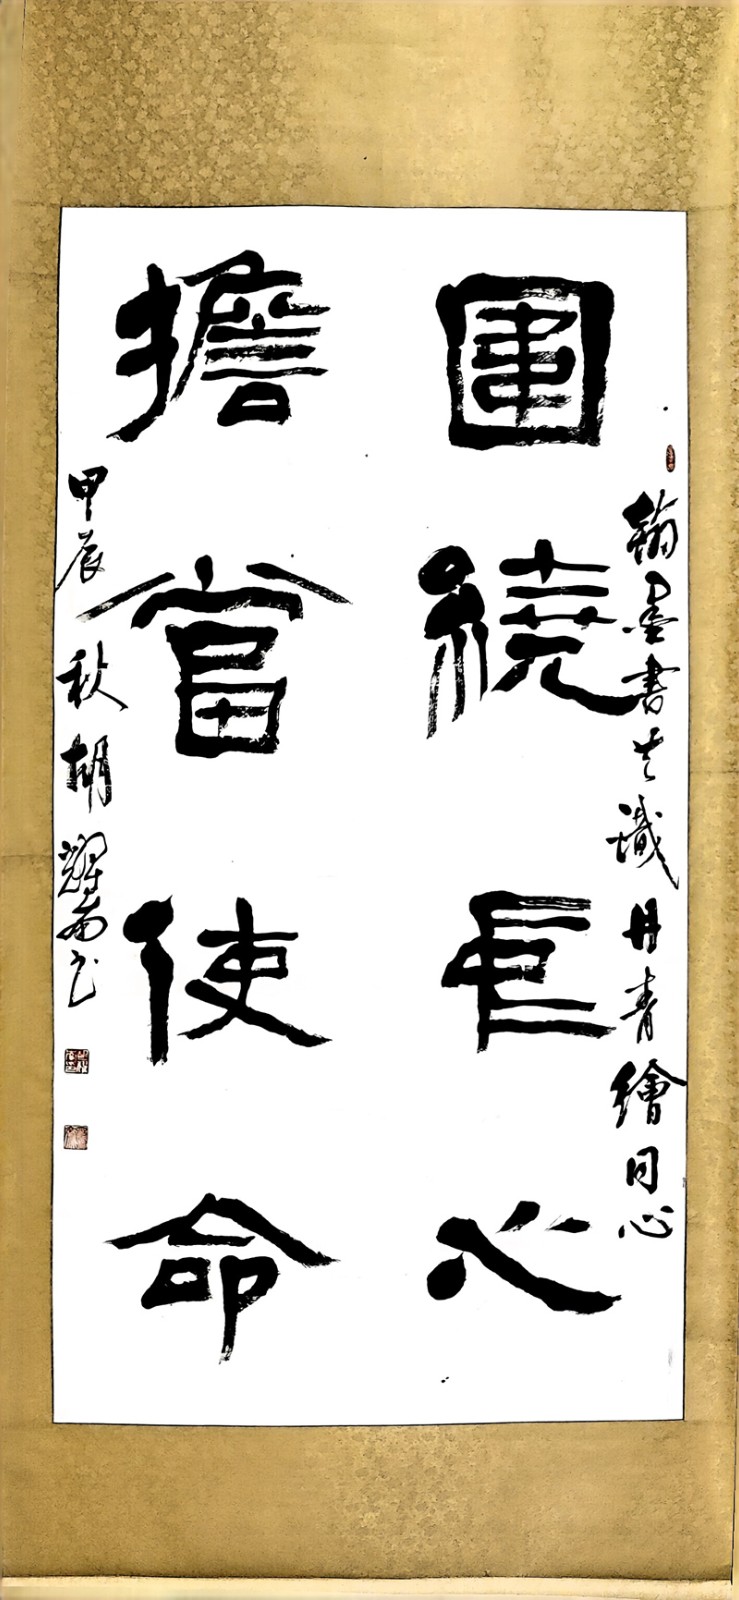 翰墨書共識丹青繪同心
圍繞心
擔當使命
甲辰秋胡耀南书